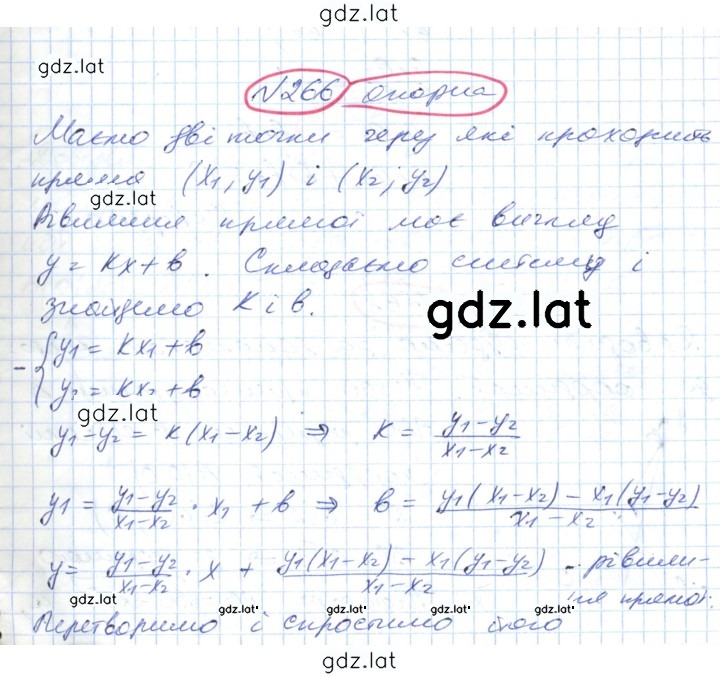 gdz.lat
gdz.lat
№266 опорна
Маємо дві точки через які проходить
пряма (x₁; y₁) і (x₂; y₂)
gdz.lat
Рівняння прямої має вигляд
y = kx + b. Складаємо систему і
знайдемо k і b.
gdz.lat
{y₁ = kx₁ + b
- {y₂ = kx₂ + b
gdz.lat
y₁ - y₂ = k(x₁ - x₂) ⇒ k = (y₁ - y₂)/(x₁ - x₂)
y₁ = (y₁ - y₂)/(x₁ - x₂) · x₁ + b ⇒ b = (y₁(x₁ - x₂) - x₁(y₁ - y₂))/(x₁ - x₂)
y = (y₁ - y₂)/(x₁ - x₂) · x + (y₁(x₁ - x₂) - x₁(y₁ - y₂))/(x₁ - x₂) - рівнян-
ня прямої.
gdz.lat gdz.lat gdz.lat gdz.lat
Перетворимо і спростимо його
gdz.lat